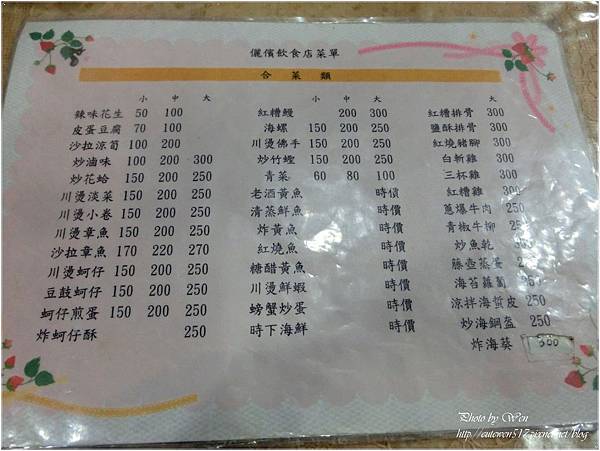 儷儐飲食店菜單
合菜類
小 中 大
辣味花生 50 100
皮蛋豆腐 70 100
沙拉涼筍 100 200
炒滷味 100 200 300
炒花蛤 150 200 250
川燙淡菜 150 200 250
川燙小卷 150 200 250
川燙章魚 150 200 250
沙拉章魚 170 220 270
川燙蚵仔 150 200 250
豆鼓蚵仔 150 200 250
蚵仔煎蛋 150 200 250
炸蚵仔酥 250
小 中 大
紅糟鰻 200 300
海螺 150 200 250
川燙佛手 150 200 250
炒竹蟶 150 200 250
青菜 60 80 100
老酒黃魚 時價
清蒸鮮魚 時價
炸黃魚 時價
紅燒魚 時價
糖醋黃魚 時價
川燙鮮蝦 時價
螃蟹炒蛋 時價
時下海鮮 時價
大
紅糟排骨 300
鹽酥排骨 300
紅燒豬腳 300
白斬雞 300
三杯雞 300
紅糟雞 300
蔥爆牛肉 250
青椒牛柳 250
炒魚乾 300
藤壺蒸蛋 250
海苔蘿蔔 250
涼拌海蜇皮 250
炒海鋼盔 250
炸海葵 300
Photo by Wen
http://cutewen517.pixnet.net/blog